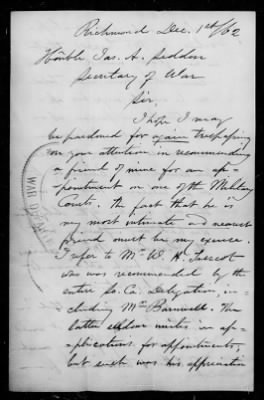 Richmond Dec. 1st/62
Honble Jas. A. Seddon
Secretary of War
Sir,
I hope I may
be pardoned for again trespassing
on your attention in recommending
a friend of mine for an ap-
-pointment on one of the Military
Courts. The fact that he is
my most intimate and nearest
friend must be my excuse.
I refer to Mr W. H. Trescot
who was recommended by the
entire So. Ca. Delegation, in-
cluding Mr Barnwell. The
latter seldom unites in ap-
-plications for appointments,
but such was his appreciation
WAR